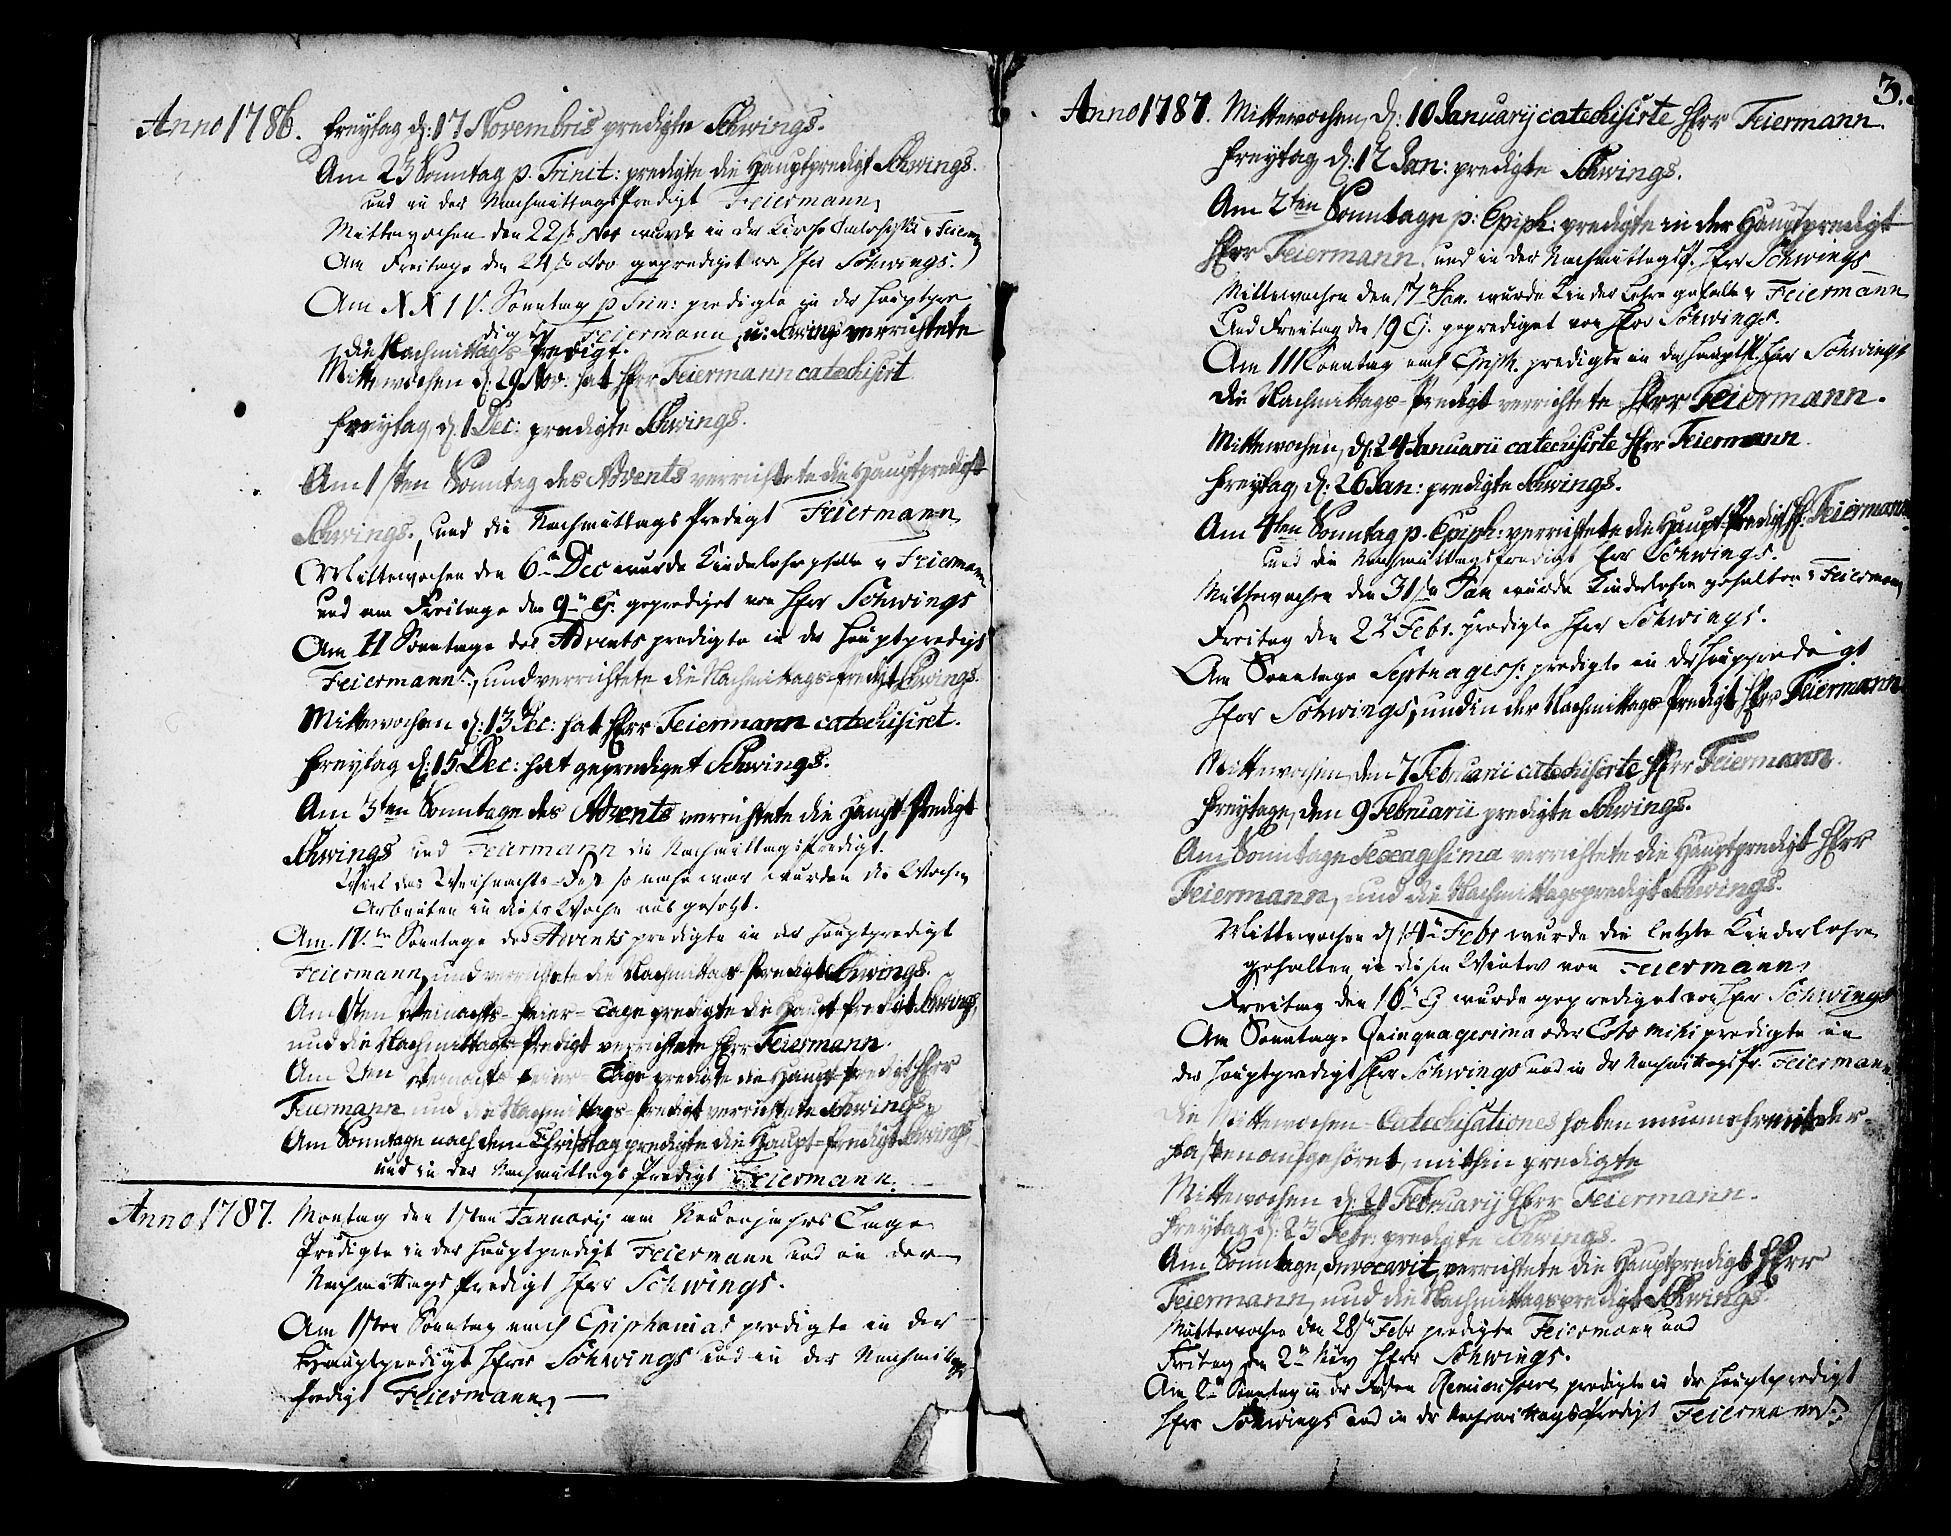 Anno 1786. Freytag d: 17 Novembris predigte Schwings.
Am 23 Sonntag p. Trinit: predigte die Hauptpredigt Schwings.
und in der Nachmittags Predigt Feiermann,
Mittewochen den 22st Nov wurde in der Kirche Feierm
Am Freitage den 24st Nov geprediget von Herr Schwings.
Am XXIV. Sonntag p Trin: predigte in der Hauptpre
digt Feiermann, u: Schwings verrichtete
die Nachmittags-Predigt.
Mittewochen d: 29 Nov: hat Herr Feiermann catechisirt
Freytag, d. 1 Dec: predigte Schwings.
Am 1sten Sonntag des Advents verrichtete die Hauptpredigt
Schwings., und die Nachmittags Predigt Feiermann,
Mittewochen den 6n Dec wurde Kinderlehr gehalten v Feiermann
und am Freitage den 9n Ej. geprediget von Herr Schwings
Am II Sonntage des Advents predigte in der Hauptpredigt
Feiermann, und verrichtete die Nachmittags-Predigt Schwings.
Mittewochen d: 13 Dec: hat Herr Feiermann catechisiret.
Freytag d: 15 Dec: hat geprediget Schwings.
Am 3ten Sonntage des Advents verrichtete die Haupt-Predigt
Schwings und Feiermann die Nachmittags Predigt.
Weil das Weihnachts-Fest so nahe war wurden die Wochen
Arbeiten in dieser Woche ausgesetzt.
Am. IV.ten Sonntage des Advents predigte in der Hauptpredigt
Feiermann, und verrichtete die Nachmittags-Predigt Schwings.
Am 1sten Weinachts-Feier-Tage predigte die Haupt Predigt Schwings,
und die Nachmittags-Predigt verrichtete Herr Feiermann.
Am 2ten Weinachts Feier-Tage predigte die Haupt-Predigt Herr
Feiermann und die Nachmittags-Predigt verrichtete Schwings.
Am Sonntage nach dem Christtag predigte die Haupt-Predigt Schwings
und in der Nachmittags Predigt Feiermann.
Anno 1787. Montag den 1sten Januarij am Neuenjahrs Tage
Predigte in der Hauptpredigt Feiermann und in der
Nachmittags Predigt Herr Schwings.
Am 1sten Sonntag nach Epiphanias predigte in der
Hauptpredigt Herr Schwings und in der Nachmittags
Predigt Feiermann,
3.
Anno 1787. Mittewochen, d: 10 Januarij catechisirte Herr Feiermann.
Freytag, d: 12 Jan: predigte Schwings.
Am 2ten Sonntage p: Epiph: predigte in der Hauptpredigt
Herr Feiermann, und in der Nachmittagsp. Herr Schwings
Mittewochen den 17n Jan. wurde Kinder Lehre gehalten v Feiermann
Und Freitag den 19 Ej. geprediget von Herr Schwings.
Am III Sonntag nach Epiph. predigte in der Hauptp. Herr Schwings
die Nachmittags-Predigt verrichtete Herr Feiermann.
Mittewochen, d: 24 Januarii catechisirte Herr Feiermann.
Freytag, d: 26 Jan: predigte Schwings.
Am 4ten Sonntag p. Epiph: verrichtete die Haupt-Predigt H: Feiermann
und die Nachmittagspredigt Herr Schwings.
Mittewochen den 31sten Jan wurde Kinderlehre gehalten v Feiermann
Freitag den 2n Febr. predigte Herr Schwings.
Am Sonntage Septuagess: predigte in der Hauppredigt
Herr Schwings, und in der Nachmittags Predigt Herr Feiermann
Mittewochen, den 7 Februarii catechisirte Herr Feiermann.
Freytage, den 9 Februarii predigte Schwings.
Am Sonntage Sexagesima verrichtete die Hauptpredigt Herr
Feiermann, und die Nachmittagspredigt Schwings.
Mittewochen d 14n Febr wurde die letzte Kinderlehre
gehalten in diesen Winter von Feiermann,
Freitag den 16n Ej wurde geprediget von Herr Schwings
Am Sonntage Quinquagesima oder Esto mihi predigte in
der Hauptpredigt Herr Schwings und in der Nachmittagspr. Feiermann.
Die Mittewochen-Catechisationes haben nunmehr mit der
Fasten aufgehöret, mithin predigte
Mittewochen d: 21 Februarij Herr Feiermann.
Freytag d: 23 Febr: predigte Schwings.
Am Sonntage, Invocavit, verrichtete die Hauptpredigt Herr
Feiermann, und die Nachmittagspredigt Schwings
Mittewochen den 28sten Febr predigte Feiermann und
Freitag den 2n Herr Schwings.
Am 2n Sonntag in der Fasten Reminiscere predigte in der Hauptpredigt
Herr Schwings und in der Nachmittagspredigt Feiermann.